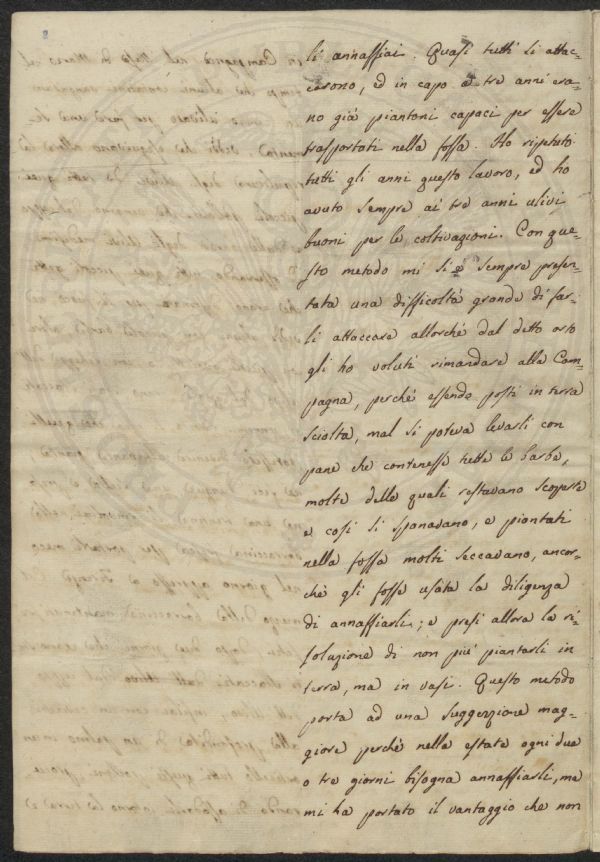 li annaffiai. Quasi tutti si attac-
carono, ed in capo a tre anni era-
no già piantoni capaci per essere
trasportati nella fossa. Ho ripetuto
tutti gli anni questo lavoro, ed ho
avuto sempre ai tre anni ulivi
buoni per le coltivazioni. Con que-
sto metodo mi si è sempre presen-
tata una difficoltà grande di far-
li attaccare allorché dal detto orto
gli ho voluti rimandare alla Cam-
pagna, perché essendo posti in terra
sciolta, mal si poteva levarli con
pane che contenesse tutte le barbe,
molte delle quali restavano scoperte
e così si spanavano, e piantati
nella fossa molti seccavano, ancor-
ché gli fosse usata la diligenza
di annaffiarli; e presi allora la ri-
soluzione di non più piantarli in
terra, ma in vasi. Questo metodo
porta ad una suggezzione mag-
giore perché nella estate ogni due
o tre giorni bisogna annaffiarli, ma
mi ha portato il vantaggio che non